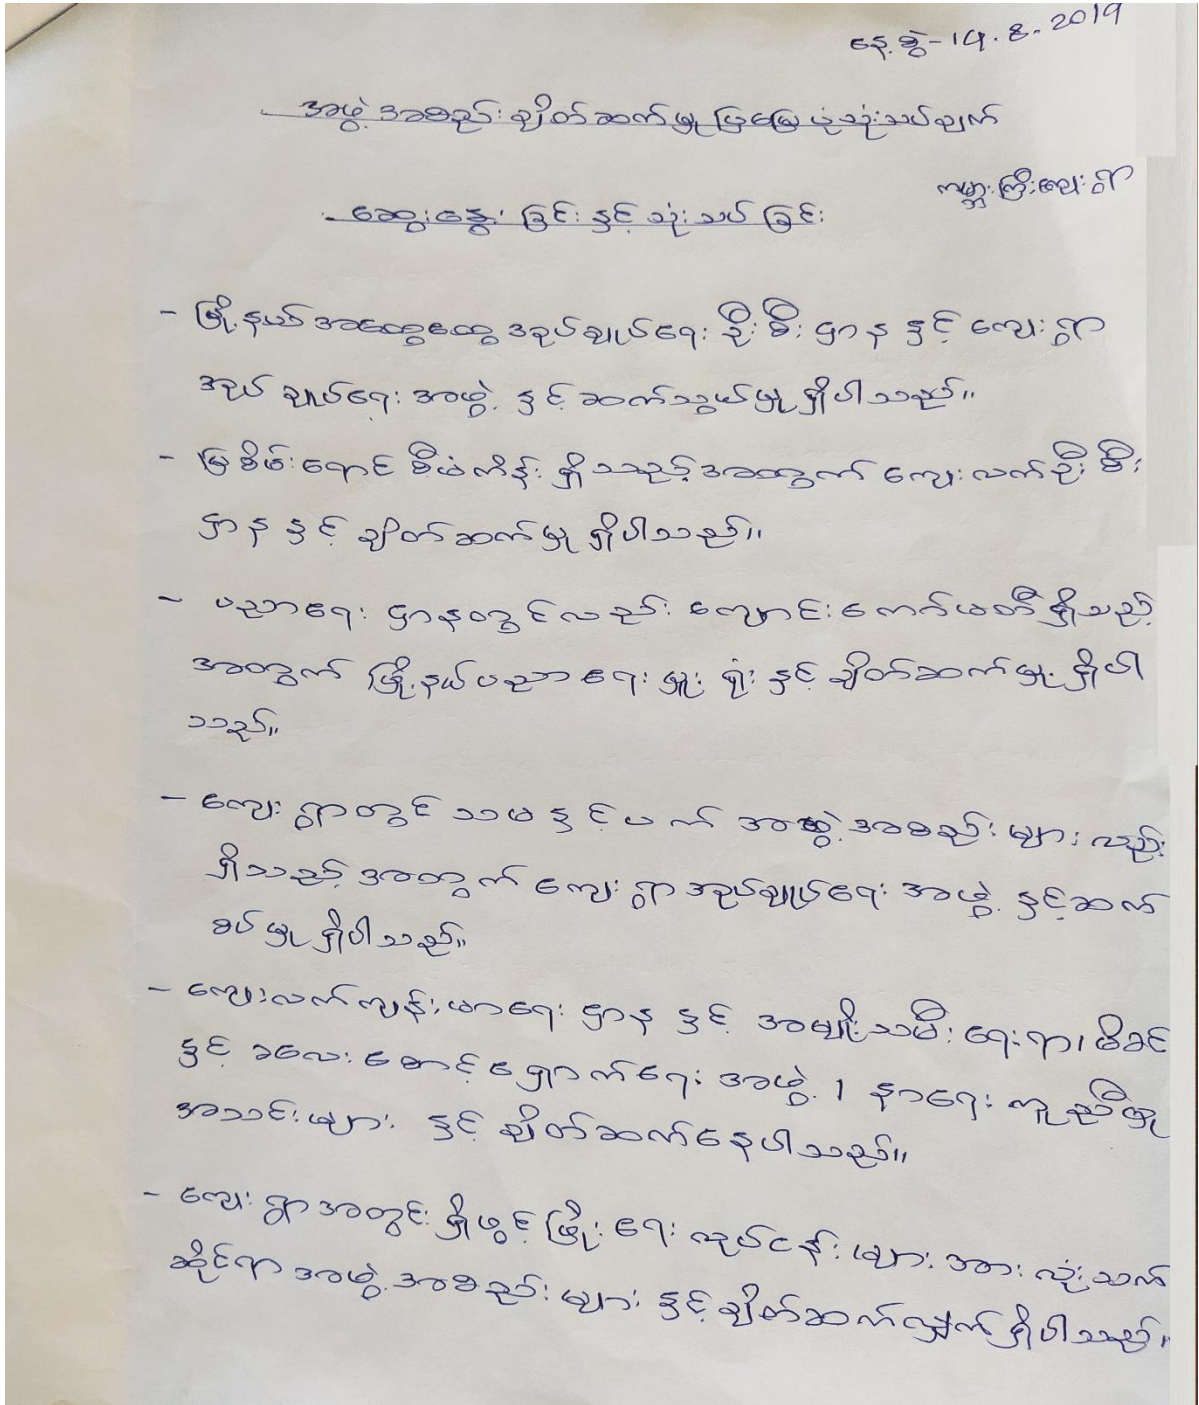 နေ့စွဲ - 14.8.2019
အဖွဲ့အစည်းချိတ်ဆက်မှုပြမြေပုံသုံးသပ်ချက်
ကမ္ဘာကြီးကျေးရွာ
ဆွေးနွေးခြင်းနှင့် သုံးသပ်ခြင်း
- မြို့နယ်အထွေထွေအုပ်ချုပ်ရေးဦးစီးဌာနနှင့် ကျေးရွာ
အုပ်ချုပ်ရေးအဖွဲ့နှင့်ဆက်သွယ်မှုရှိပါသည်။
- မြစိမ်းရောင်စီမံကိန်းရှိသည့်အတွက် ကျေးလက်ဦးစီး
ဌာနနှင့် ချိတ်ဆက်မှုရှိပါသည်။
- ပညာရေးဌာနတွင်လည်း ကျောင်းကော်မတီရှိသည့်
အတွက် မြို့နယ်ပညာရေးမှူးရုံးနှင့် ချိတ်ဆက်မှုရှိပါ
သည်။
- ကျေးရွာတွင် သမနှင့်ပက် အဖွဲ့အစည်းများလည်း
ရှိသည့်အတွက် ကျေးရွာအုပ်ချုပ်ရေးအဖွဲ့နှင့်ဆက်
စပ်မှုရှိပါသည်။
- ကျေးလက်ကျန်းမာရေးဌာနနှင့် အမျိုးသမီးရေးရာ၊ မိခင်
နှင့် ခလေးစောင့်ရှောက်ရေးအဖွဲ့၊ နာရေးကူညီမှု
အသင်းများနှင့် ချိတ်ဆက်နေပါသည်။
- ကျေးရွာအတွင်းရှိဖွင့်ဖြိုးရေးလုပ်ငန်းများအားလုံးသက်
ဆိုင်ရာအဖွဲ့အစည်းများနှင့်ချိတ်ဆက်လျှက်ရှိပါသည်။